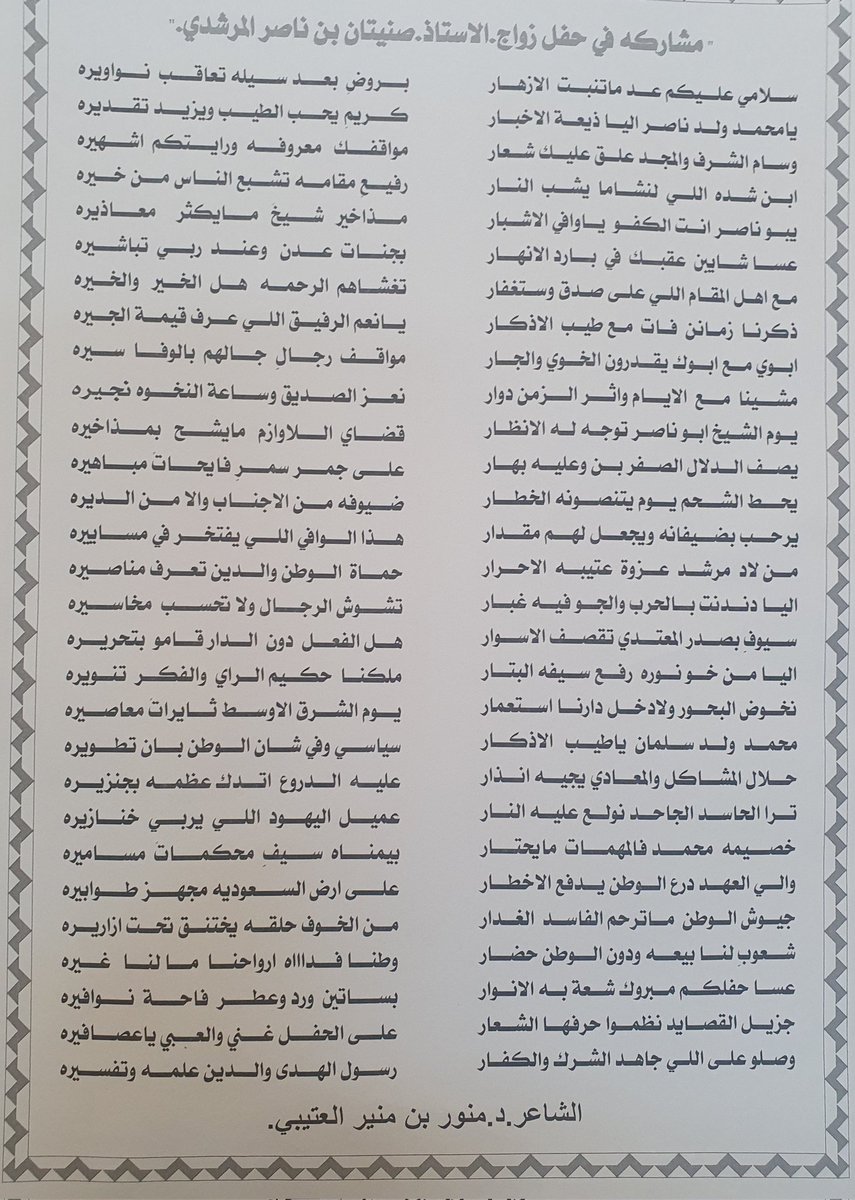 "مشاركه في حفل زواج.الاستاذ.صنيتان بن ناصر المرشدي."
سلامي عليكم عد ماتنبت الازهار بروضِ بعد سيله تعاقب نواويره
يامحمد ولد ناصر اليا ذيعة الاخبار كريمِ يحب الطيب ويزيد تقديره
وسام الشرف والمجد علق عليك شعار مواقفك معروفه ورايتكم اشهيره
ابن شده اللي لنشاما يشب النار رفيعِ مقامه تشبع الناس من خيره
يبو ناصر انت الكفو ياوافي الاشبار مذاخير شيخ مايكثر معاذيره
عسا شايبن عقبك في بارد الانهار بجنات عدن وعند ربي تباشيره
مع اهل المقام اللي على صدق وستغفار تغشاهم الرحمه هل الخير والخيره
ذكرنا زمانن فات مع طيب الاذكار يانعم الرفيق اللي عرف قيمة الجيره
ابوي مع ابوك يقدرون الخوي والجار مواقف رجالِ جالهم بالوفا سيره
مشينا مع الايام واثر الزمن دوار نعز الصديق وساعة النخوه نجيره
يوم الشيخ ابو ناصر توجه له الانظار قضاي اللاوازم مايشح بمذاخيره
يصف الدلال الصفر بن وعليه بهار على جمر سمرِ فايحاتَ مباهيره
يحط الشحم يوم يتنصونه الخطار ضيوفه من الاجناب والا من الديره
يرحب بضيفانه ويجعل لهم مقدار هذا الوافي اللي يفتخر في مساييره
من لاد مرشد عزوة عتيبه الاحرار حماة الوطن والدين تعرف مناصيره
اليا دندنت بالحرب والجو فيه غبار تشوش الرجال ولا تحسب مخاسيره
سيوفِ بصدر المعتدي تقصف الاسوار هل الفعل دون الدار قامو بتحريره
اليا من خو نوره رفع سيفه البتار ملكنا حكيم الراي والفكر تنويره
نخوض البحور ولادخل دارنا استعمار يوم الشرق الاوسط ثايراتَ معاصيره
محمد ولد سلمان ياطيب الاذكار سياسي وفي شان الوطن بان تطويره
حلال المشاكل والمعادي يجيه انذار عليه الدروع اتدك عظمه بجنزيره
ترا الحاسد الجاحد نولع عليه النار عميل اليهود اللي يربي خنازيره
خصيمه محمد فالمهمات مايحتار بيمناه سيفِ محكمات مساميره
والي العهد درع الوطن يدفع الاخطار على ارض السعوديه مجهز طوابيره
جيوش الوطن ماترحم الفاسد الغدار من الخوف حلقه يختنق تحت ازاريره
شعوب لنا بيعه ودون الوطن حضار وطنا فداااه ارواحنا ما لنا غيره
عسا حفلكم مبروك شعة به الانوار بساتين ورد وعطر فاحة نوافيره
جزيل القصايد نظموا حرفها الشعار على الحفل غني والعبي ياعصافيره
وصلو على اللي جاهد الشرك والكفار رسول الهدى والدين علمه وتفسيره
الشاعر.د.منور بن منير العتيبي.